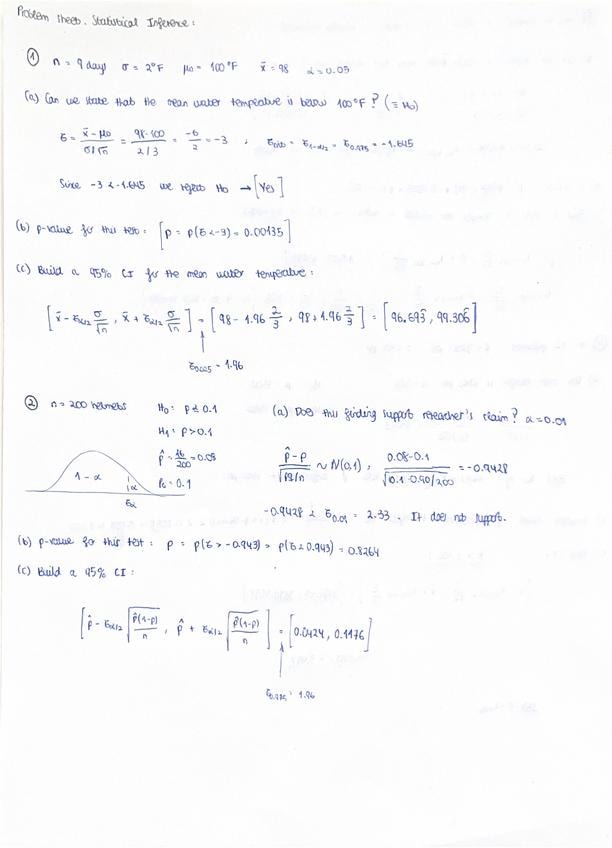 Problem Sheet. Statistical Inference:
① n = 9 days σ = 2°F μ₀ = 100°F x̄ = 98 α = 0.05
(a) Can we state that the mean water temperature is below 100°F? (≡ H₀)
z = (x̄ - μ₀)/(σ/√n) = (98-100)/(2/3) = -6/2 = -3 ; = z₁₋α/₂ = z₀.₉₇₅ = -1.645
Since -3 < -1.645 we reject H₀ → [Yes]
(b) p-value for this test: [p = p(z < -3) = 0.00135]
(c) Build a 95% CI for the mean water temperature:
[x̄ - zα/₂ σ/√n , x̄ + zα/₂ σ/√n] = [98 - 1.96 2/3 , 98 + 1.96 2/3] = [96.693̄, 99.306̄]
z₀.₀₂₅ = 1.96
② n = 200 helmets H₀: p ≤ 0.1 (a) Does this finding support researcher's claim? α = 0.01
H₁: p > 0.1
p̂ = 16/200 = 0.08 (p̂ - p)/√(pq/n) ~ N(0,1) ; (0.08-0.1)/√(0.1·0.90/200) = -0.9428
1-α α p₀ = 0.1
zα
-0.9428 < z₀.₀₁ = 2.33 It does not support.
(b) p-value for this test: p = p(z > -0.943) = p(z < 0.943) = 0.8264
(c) Build a 95% CI:
[p̂ - zα/₂ √(p̂(1-p)/n) , p̂ + zα/₂ √(p̂(1-p)/n)] = [0.0424, 0.1176]
= 1.96